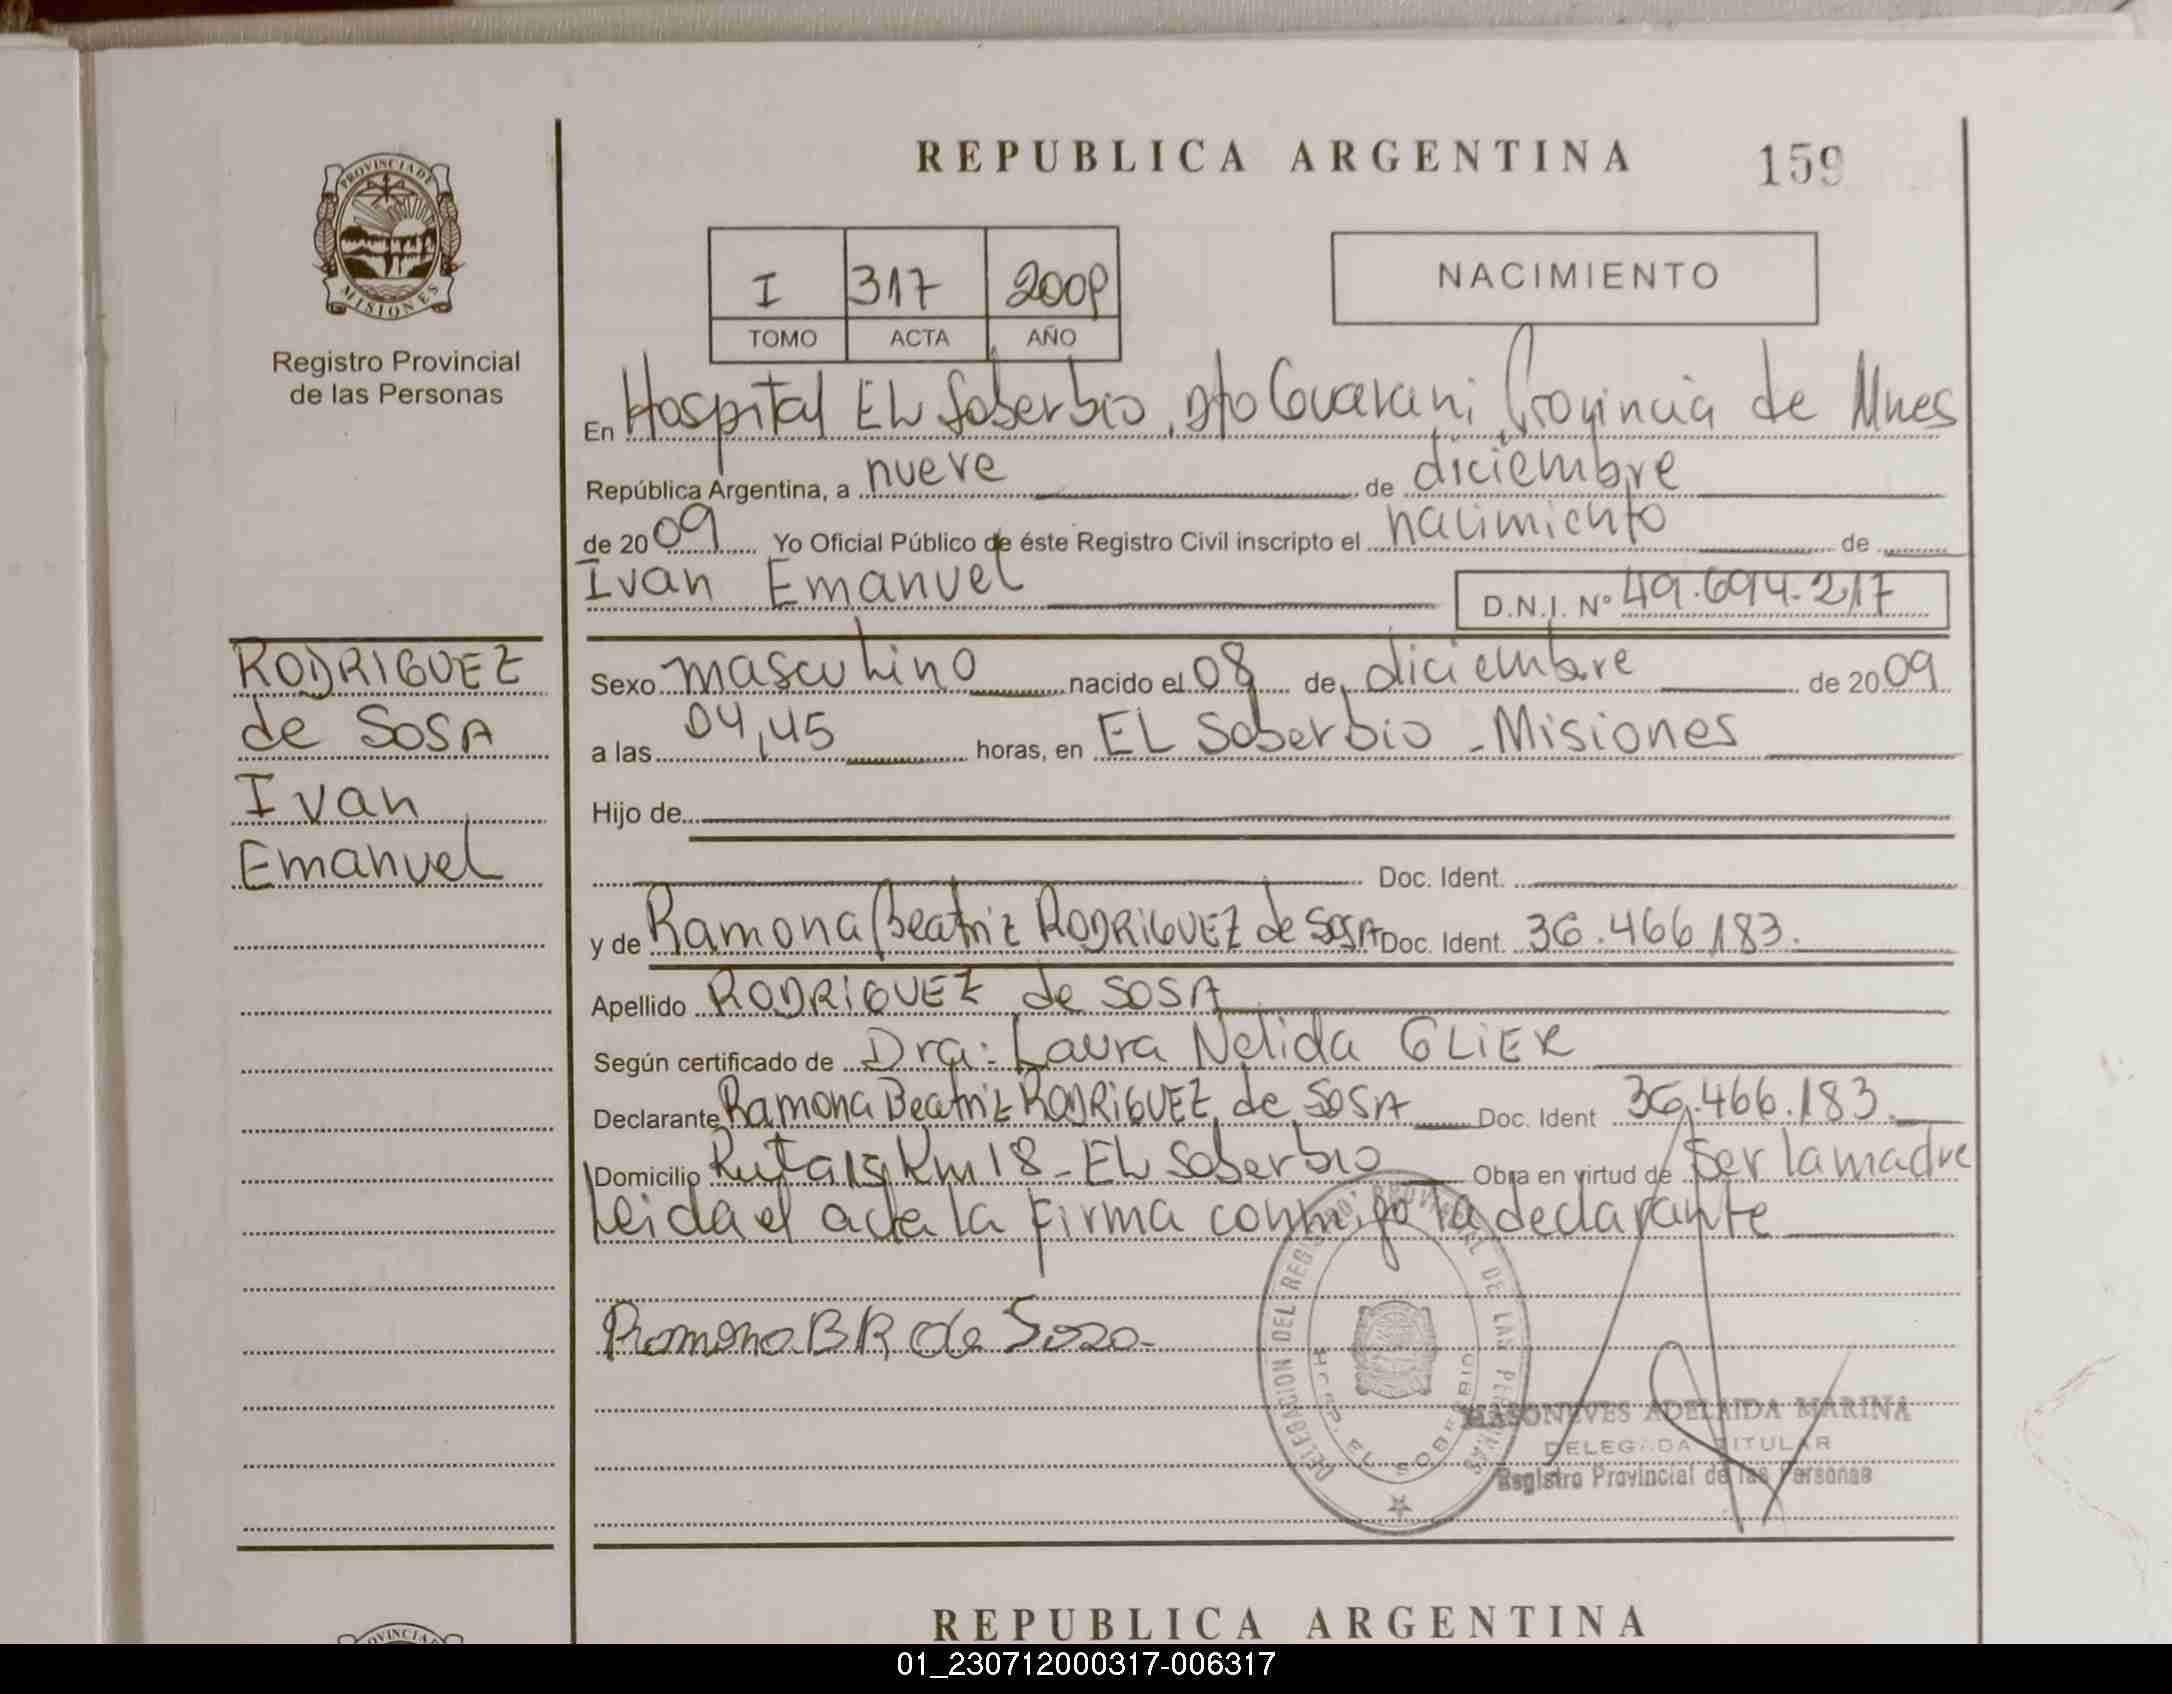 REPUBLICA ARGENTINA
159
PROVINCIA DE
MISIONES
Registro Provincial
de las Personas
I 317 2009
TOMO ACTA AÑO
NACIMIENTO
En Hospital EL Soberbio, Dto Guarani, Provincia de Mnes
República Argentina, a nueve de diciembre
de 2009 Yo Oficial Público de éste Registro Civil inscripto el nacimiento de
Ivan Emanuel D.N.I. Nº 49.694.217
RODRIGUEZ
de SOSA
Ivan
Emanuel
Sexo masculino nacido el 08 de diciembre de 2009
a las 04,45 horas, en EL Soberbio - Misiones
Hijo de
Doc. Ident.
y de Ramona Beatriz RODRIGUEZ de SOSA Doc. Ident. 36.466.183.
Apellido RODRIGUEZ de SOSA
Según certificado de Dra: Laura Nelida GLIER
Declarante Ramona Beatriz RODRIGUEZ de SOSA Doc. Ident 36.466.183.
Domicilio Ruta 13 Km 18 - EL Soberbio Obra en virtud de Ser la madre
Leida el acta la firma conmigo la declarante
Ramona B R de Sosa
DELEGACION DEL REGISTRO PROVINCIAL DE LAS PERSONAS
HOSP. EL SOBERBIO
ADELAIDA MARINA
DELEGADA TITULAR
Registro Provincial de las Personas
REPUBLICA ARGENTINA
01_230712000317-006317